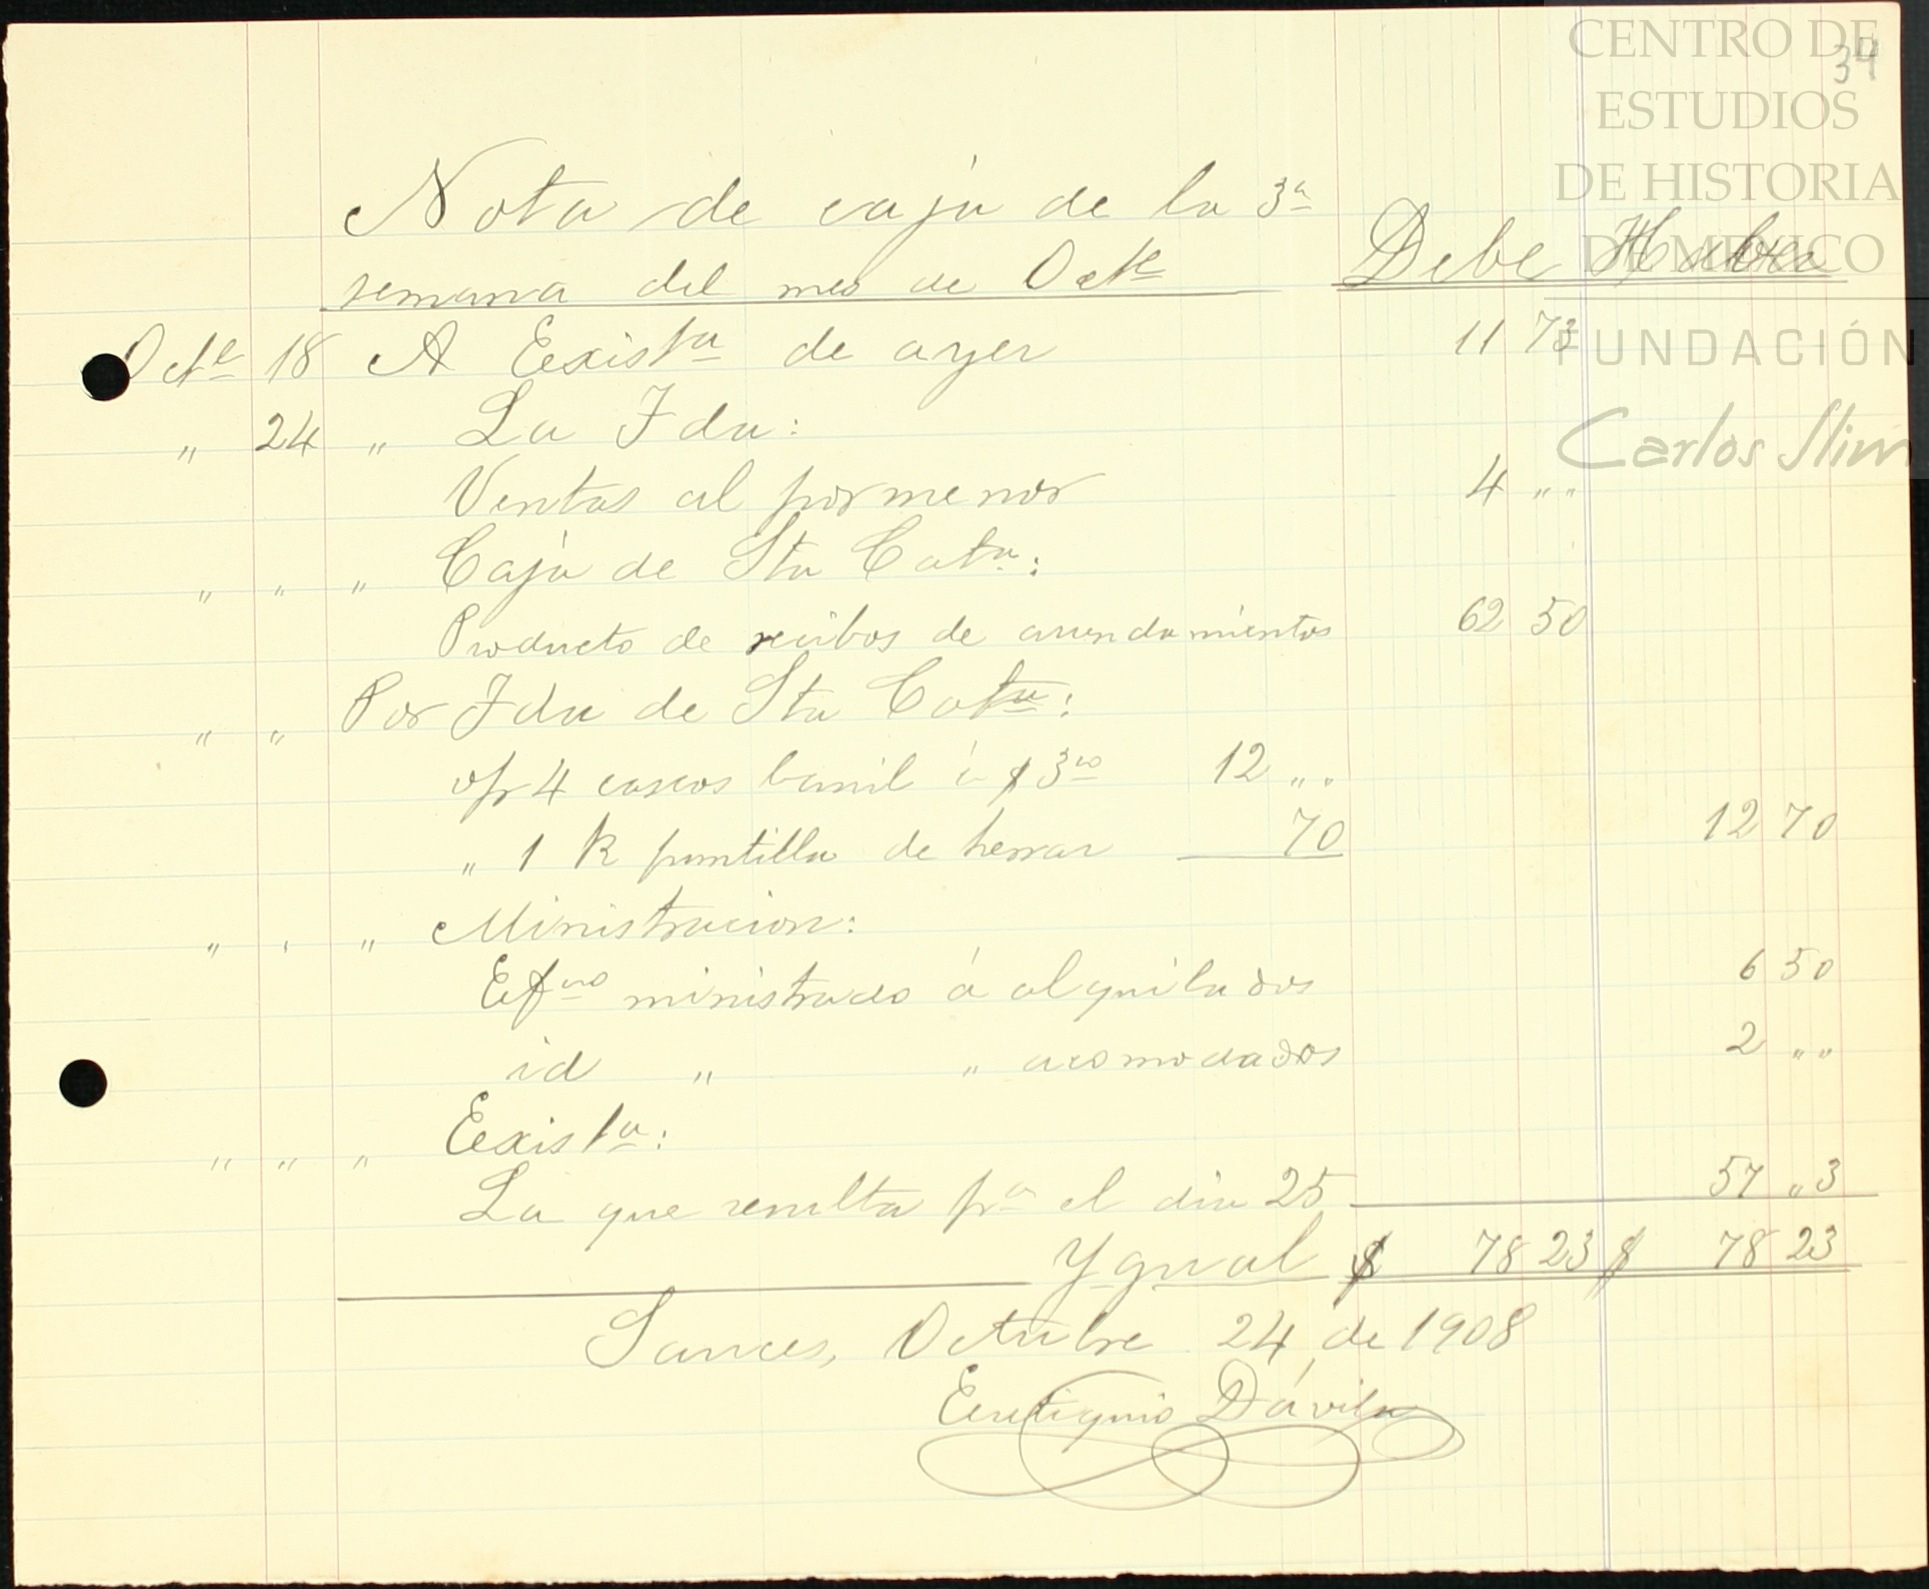 CENTRO DE
ESTUDIOS
DE HISTORIA
DE MÉXICO
FUNDACIÓN
Carlos Slim
34
Nota de caja de la 3ª
semana del mes de Octe Debe Haber
Octe 18 A Eexista de ayer 11 73
" 24 " La Fda:
Ventas al pormenor 4 " "
" " " Caja de Sta Cata:
Producto de recibos de arrendamientos 62 50
" " Por Fda de Sta Cata:
o/p 4 cascos barril á $ 3oo 12 " "
" 1 K puntilla de herrar 70 12 70
" " " Ministracion:
Eefvo ministrado á alquilados 6 50
id " " acomodados 2 " "
" " " Eexista:
La que resulta pa el dia 25 57 " 3
Ygual $ 78 23 $ 78 23
Sauces, Octubre 24 de 1908
Eeutiquio Dávila